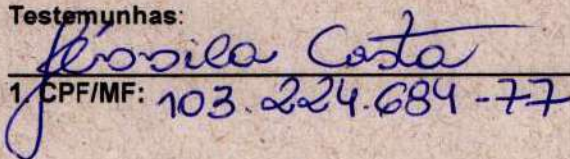 Testemunhas:
Jéssica Costa
1. CPF/MF: 103.224.684-77